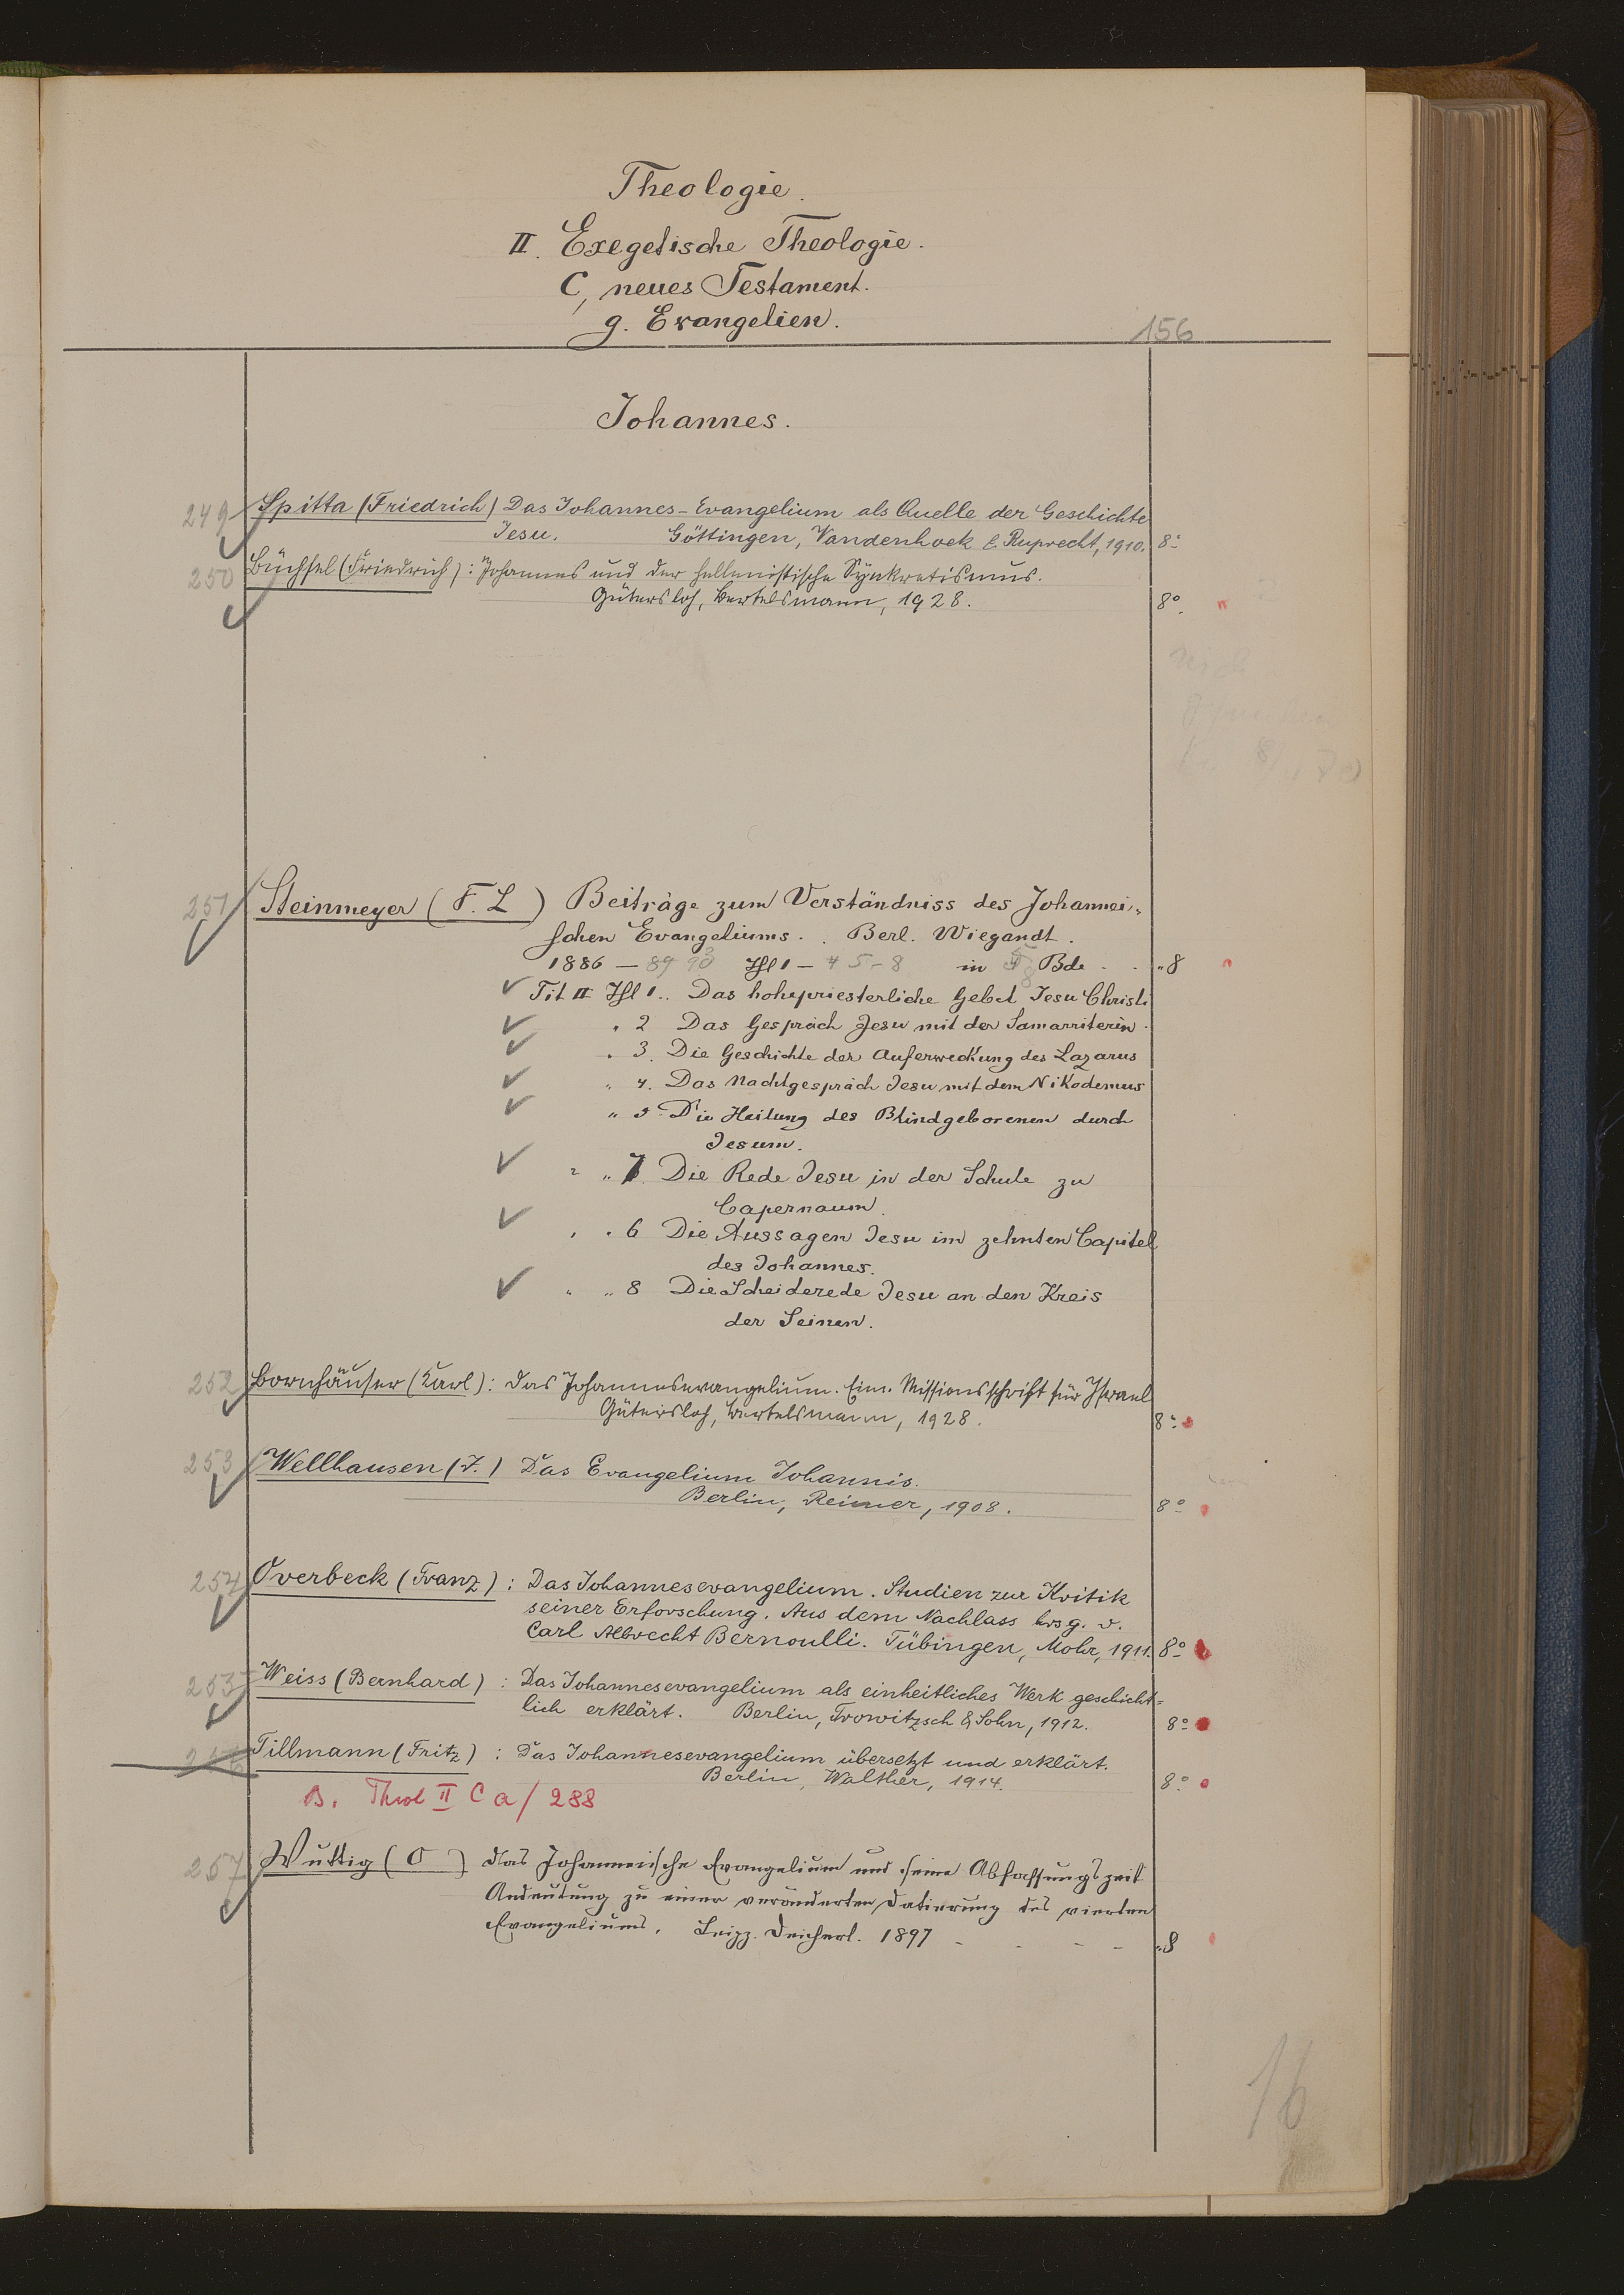 Theologie.
II. Exegetische Theologie.
C, neues Testament.
g. Evangelien.
156
Johannes.
249 Spitta (Friedrich) Das Johannes-Evangelium als Quelle der Geschichte
Jesu. Göttingen, Vandenhoek & Ruprecht, 1910. 8°
250 Büchsel (Friedrich): Johannes und der hellenistische Synkretismus.
Gütersloh, Bertelsmann, 1928. 8°
251 Steinmeyer (F. L) Beiträge zum Verständniss des Johannei-
schen Evangeliums. Berl. Wiegandt.
1886 – 89 90 Thl 1 – 4 5-8 in Bde . . „8
Tit II Thl 1.. Das hohepriesterliche Gebet Jesu Christi
" 2 Das Gespräch Jesu mit der Samarriterin.
" 3. Die Geschichte der Auferweckung des Lazarus
" 4. Das Nachtgespräch Jesu mit dem Nikodemus
" 5. Die Heilung des Blindgeborenen durch
Jesum.
" " 7. Die Rede Jesu in der Schule zu
Capernaum.
" " 6 Die Aussagen Jesu im zehnten Capitel
des Johannes.
" " 8 Die Scheiderede Jesu an den Kreis
der Seinen.
252 Bornhäuser (Karl): Das Johannesevangelium. Eine Missionsschrift für Israel
Gütersloh, Bertelsmann, 1928. 8°
253 Wellhausen (J.) Das Evangelium Johannis.
Berlin, Reimer, 1908. 8°
254 Overbeck (Franz): Das Johannesevangelium. Studien zur Kritik
seiner Erforschung. Aus dem Nachlass hrsg. v.
Carl Albrecht Bernoulli. Tübingen, Mohr, 1911. 8°
255 Weiss (Bernhard): Das Johannesevangelium als einheitliches Werk geschicht=
lich erklärt. Berlin, Trowitzsch & Sohn, 1912. 8°
256 Tillmann (Fritz): Das Johannesevangelium übersetzt und erklärt.
Berlin, Walther, 1914. 8°
B. Theol II C a/ 288
257 Wuttig (O ) das Johanneische Evangelium und seine Abfassungszeit
Andeutung zu einer veränderten Datierung des vierten
Evangeliums. Leipz. Deichert. 1897 - - - - „8
16